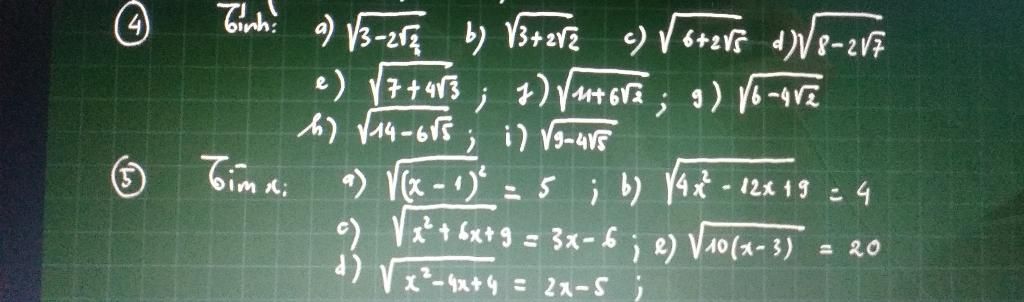 ④ Tính: a) √(3-2√2) b) √(3+2√2) c) √(6+2√5) d) √(8-2√7)
e) √(7+4√3) ; f) √(11+6√2) ; g) √(6-4√2)
h) √(14-6√5) ; i) √(9-4√5)
⑤ Tìm x: a) √((x-1)²) = 5 ; b) √(4x²-12x+9) = 4
c) √(x²+6x+9) = 3x-6 ; e) √(10(x-3)) = 20
d) √(x²-4x+4) = 2x-5 ;